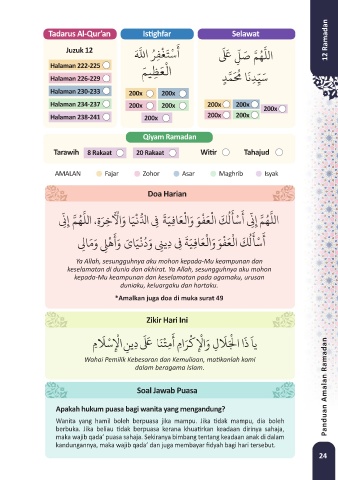 12 Ramadan
Tadarus Al-Qur'an
Istighfar
Selawat
Juzuk 12
Halaman 222-225
Halaman 226-229
Halaman 230-233
Halaman 234-237
Halaman 238-241
أَسْتَغْفِرُ اللَّهَ
الْعَظِيمَ
اللَّهُمَّ صَلِّ عَلَىٰ
سَيِّدِنَا مُحَمَّدٍ
200x 200x
200x 200x
200x
200x 200x
200x
200x 200x
Qiyam Ramadan
Tarawih 8 Rakaat 20 Rakaat Witir Tahajud
AMALAN Fajar Zohor Asar Maghrib Isyak
Doa Harian
اللَّهُمَّ إِنِّي أَسْأَلُكَ الْعَفْوَ وَالْعَافِيَةَ فِي الدُّنْيَا وَالْآخِرَةِ، اللَّهُمَّ إِنِّي
أَسْأَلُكَ الْعَفْوَ وَالْعَافِيَةَ فِي دِينِي وَدُنْيَايَ وَأَهْلِي وَمَالِي
Ya Allah, sesungguhnya aku mohon kepada-Mu keampunan dan
keselamatan di dunia dan akhirat. Ya Allah, sesungguhnya aku mohon
kepada-Mu keampunan dan keselamatan pada agamaku, urusan
duniaku, keluargaku dan hartaku.
*Amalkan juga doa di muka surat 49
Zikir Hari Ini
يَا ذَا الْجَلَالِ وَالْإِكْرَامِ أَمِتْنَا عَلَىٰ دِينِ الْإِسْلَامِ
Wahai Pemilik Kebesaran dan Kemuliaan, matikanlah kami
dalam beragama Islam.
Soal Jawab Puasa
Apakah hukum puasa bagi wanita yang mengandung?
Wanita yang hamil boleh berpuasa jika mampu. Jika tidak mampu, dia boleh
berbuka. Jika beliau tidak berpuasa kerana khuatirkan keadaan dirinya sahaja,
maka wajib qada' puasa sahaja. Sekiranya bimbang tentang keadaan anak di dalam
kandungannya, maka wajib qada' dan juga membayar fidyah bagi hari tersebut.
Panduan Amalan Ramadan
24